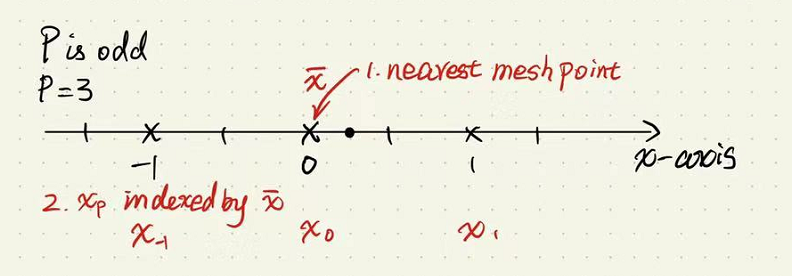 P is odd
P=3
x̄
1. nearest mesh point
-1 0 1
x-axis
2. xₚ indexed by x̄
x₋₁ x₀ x₁